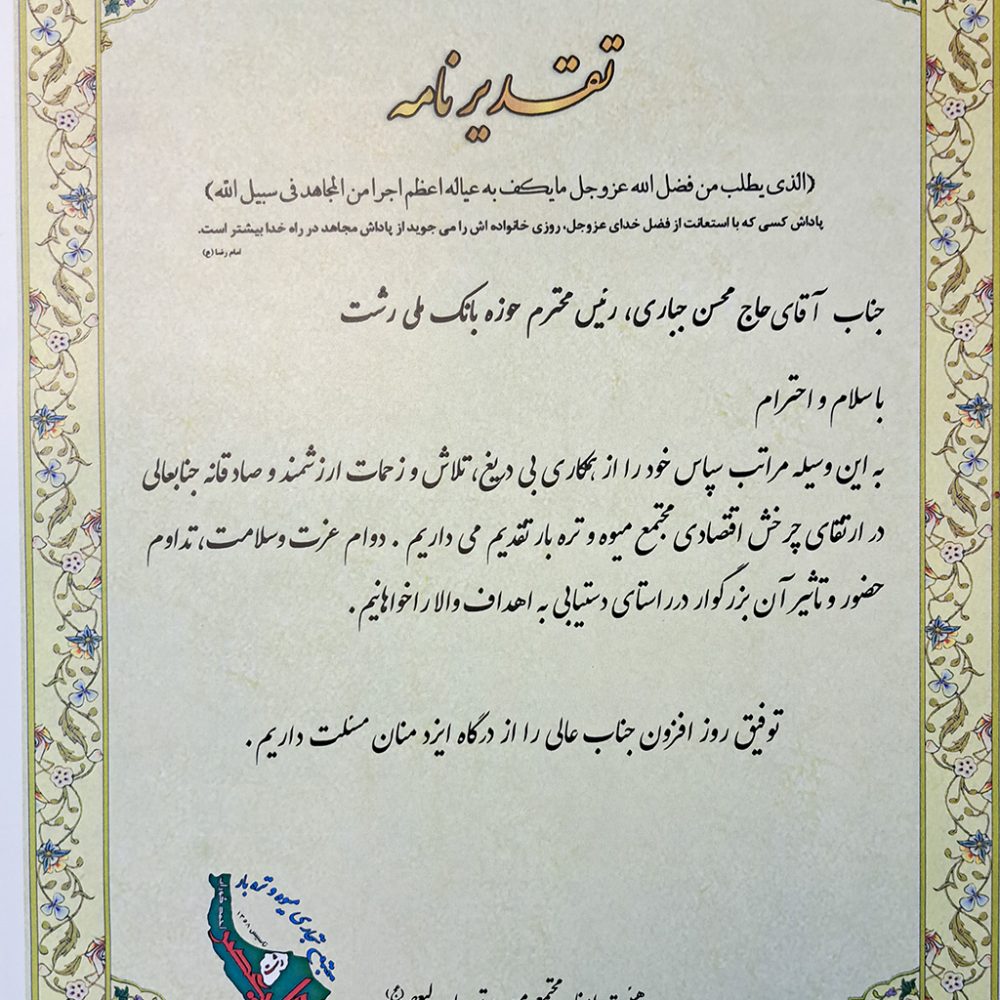 تقدیر نامه
(الذی یطلب من فضل الله عزوجل مایکف به عیاله اعظم اجرا من المجاهد فی سبیل الله)
پاداش کسی که با استعانت از فضل خدای عزوجل، روزی خانواده اش را می جوید از پاداش مجاهد در راه خدا بیشتر است.
امام رضا (ع)
جناب آقای حاج محسن جباری، رئیس محترم حوزه بانک ملی رشت
با سلام و احترام
به این وسیله مراتب سپاس خود را از همکاری بی دریغ، تلاش و زحمات ارزشمند و صادقانه جنابعالی
در ارتقای چرخش اقتصادی مجتمع میوه و تره بار تقدیم می داریم . دوام عزت وسلامت، تداوم
حضور و تاثیر آن بزرگوار درراستای دستیابی به اهداف والا راخواهانیم .
توفیق روز افزون جناب عالی را از درگاه ایزد منان مسئلت داریم .
مجتمع تجاری میوه و تره بار
تاسیس ۱۳۵۸
رشت